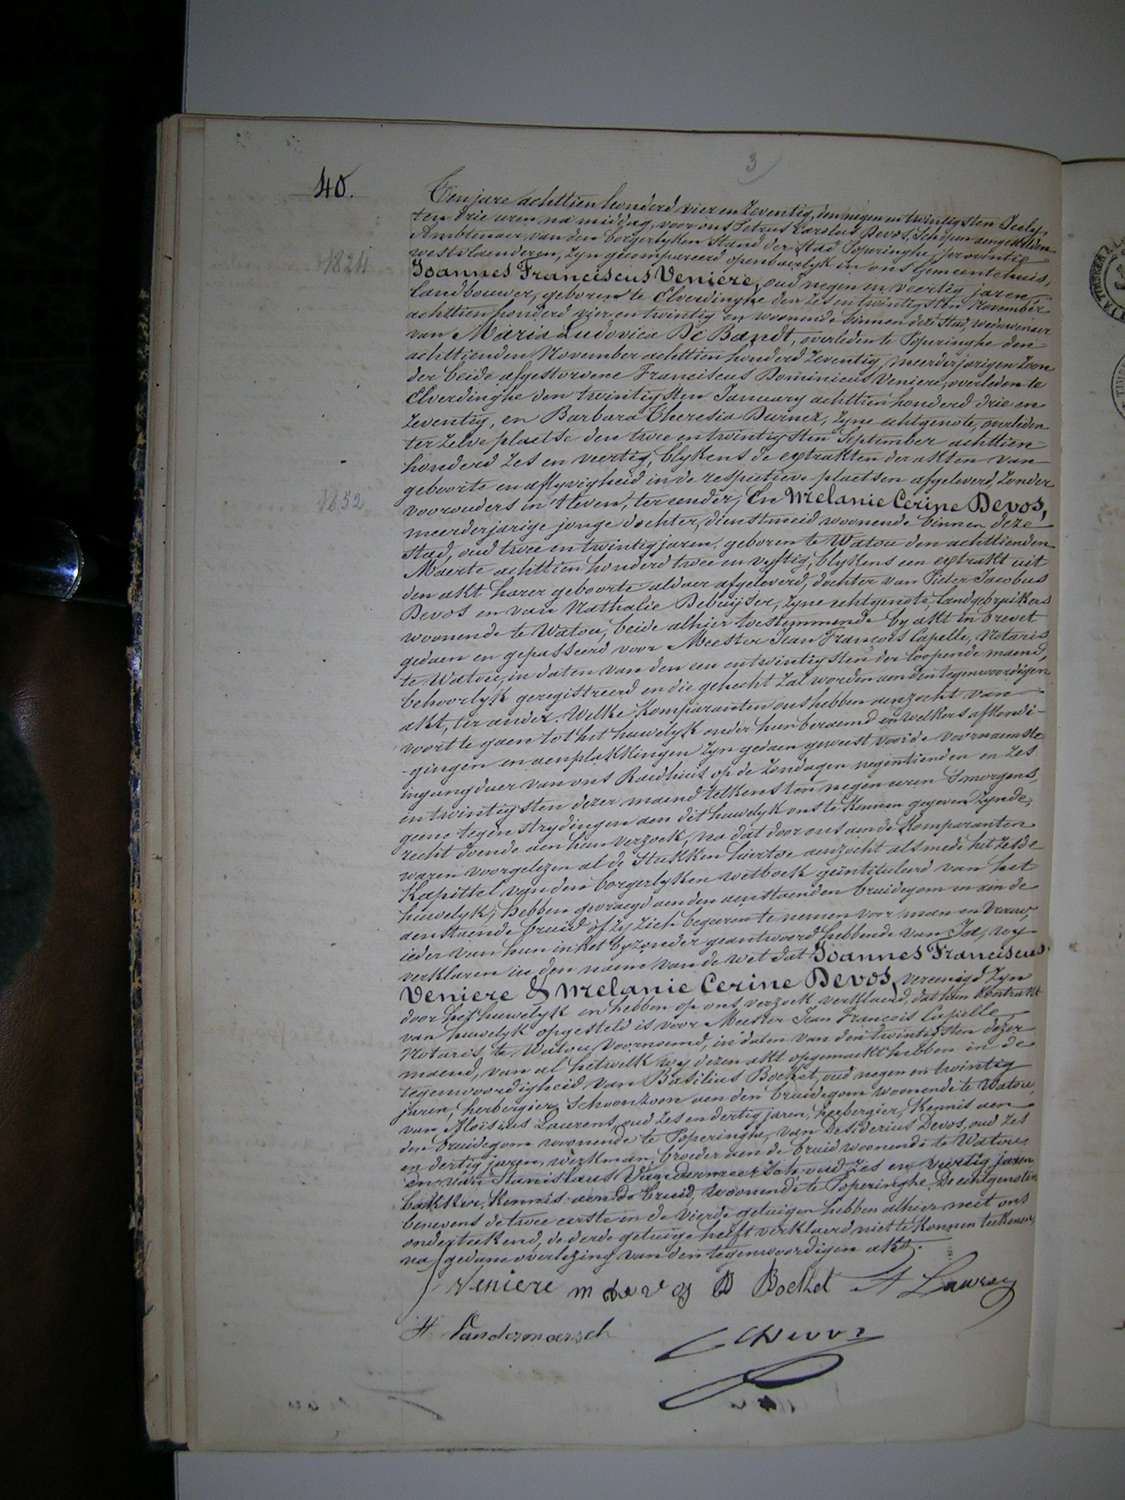 3
40.
Ten jare achttien honderd vier en zeventig, den negen en twintigsten July,
ten drie uren na middag, voor ons Petrus Carolus Devos, Schepen aengestelden
Ambtenaer van den borgerlyken stand der stad Poperinghe, provintie
westvlaenderen, zyn gecompareerd openbaerlyk in ons Gemeentehuis,
1824
Joannes Franciscus Veniere, oud negen en veertig jaren,
landbouwer, geboren te Elverdinghe den zes en twintigsten November
achttien honderd vier en twintig en woonende binnen deze Stad, weduwenaer
van Maria Ludovica De Bandt, overleden te Poperinghe den
achttienden November achttien honderd zeventig, meerderjarigen zoon
der beide afgestorvene Franciscus Dominicus Veniere, overleden te
Elverdinghe den twintigsten January achttien honderd drie en
zeventig, en Barbara Theresia Durnez, zyne echtgenote, overleden
ter zelve plaetse den twee en twintigsten September achttien
honderd zes en veertig, blykens de extrakten der akten van
geboorte en aflyvigheid in de respective plaetsen afgeleverd, zonder
voorouders in 't leven, ter eender; En Melanie Cerine Devos,
1852
meerderjarige jonge dochter, dienstmeid woonende binnen deze
stad, oud twee en twintig jaren, geboren te Watou den achttienden
Maerte achttien honderd twee en vyftig, blykens een extrakt uit
den akt harer geboorte aldaer afgeleverd, dochter van Pieter Jacobus
Devos en van Nathalie Debuijser, zyne echtgenote, landgebruikers
woonende te Watou, beide alhier toestemmende by akt in brevet
gedaen en gepasseerd voor Meester Jean François Capelle, Notaris
te Watou, in daten van den een en twintigsten der loopende maend,
behoorlyk geregistreerd en die gehecht zal worden aen den tegenwoordigen
akt, ter ander. Welke Komparanten ons hebben aenzocht van
voort te gaen tot het huwelyk onder hun beraemd en welkers afkondi-
gingen en aenplakkingen zyn gedaen geweest voor de voornaemste
ingang duer van ons Raedhuis op de Zondagen negentienden en zes
en twintigsten dezer maend telkens ten negen uren 's morgens,
geene tegenstrydingen aen dit huwelyk ons te kennen gegeven zynde,
recht doende aen hun verzoek, na dat door ons aen de Komparanten
waren voorgelezen al de stukken hiertoe aenzocht alsmede het zesde
Kapittel van den borgerlyken wetboek geïntituleerd van het
huwelyk, hebben gevraegd aen den aenstaenden bruidegom en aen de
aenstaende bruid of zy zich begeeren te nemen voor man en vrouw,
ieder van hun in het byzonder geantwoord hebbende van Ja, wy
verklaren in den naeme van de wet dat Joannes Franciscus
Veniere & Melanie Cerine Devos, vereenigd zyn
door het huwelyk en hebben op ons verzoek verklaerd, dat hun Kontrakt
van huwelyk opgesteld is voor Meester Jean François Capelle,
Notaris te Watou voornoemd, in daten van den twintigsten dezer
maend, van al hetwelk wy dezen akt opgemaekt hebben in de
tegenwoordigheid van Basilius Boeket, oud negen en twintig
jaren, herbergier, Schoonzoon aen den bruidegom woonende te Watou,
van Aloïsius Laurens, oud zes en dertig jaren, herbergier, Kennis aen
den bruidegom woonende te Poperinghe, van Desiderius Devos, oud zes
en dertig jaren, werkman, broeder aen de bruid woonende te Watou
en van Stanislaus Vandermeersch, oud zes en veertig jaren
bakker, Kennis aen de bruid, woonende te Poperinghe. De echtgenoten
benevens de twee eerste en de vierde getuigen hebben alhier met ons
onderteekend, de derde getuige heeft verklaerd niet te konnen teekenen,
na gedane overlezing van den tegenwoordigen akt.
J Veniere m devos B Boeket A Laurens
St Vandermersch
C Devos